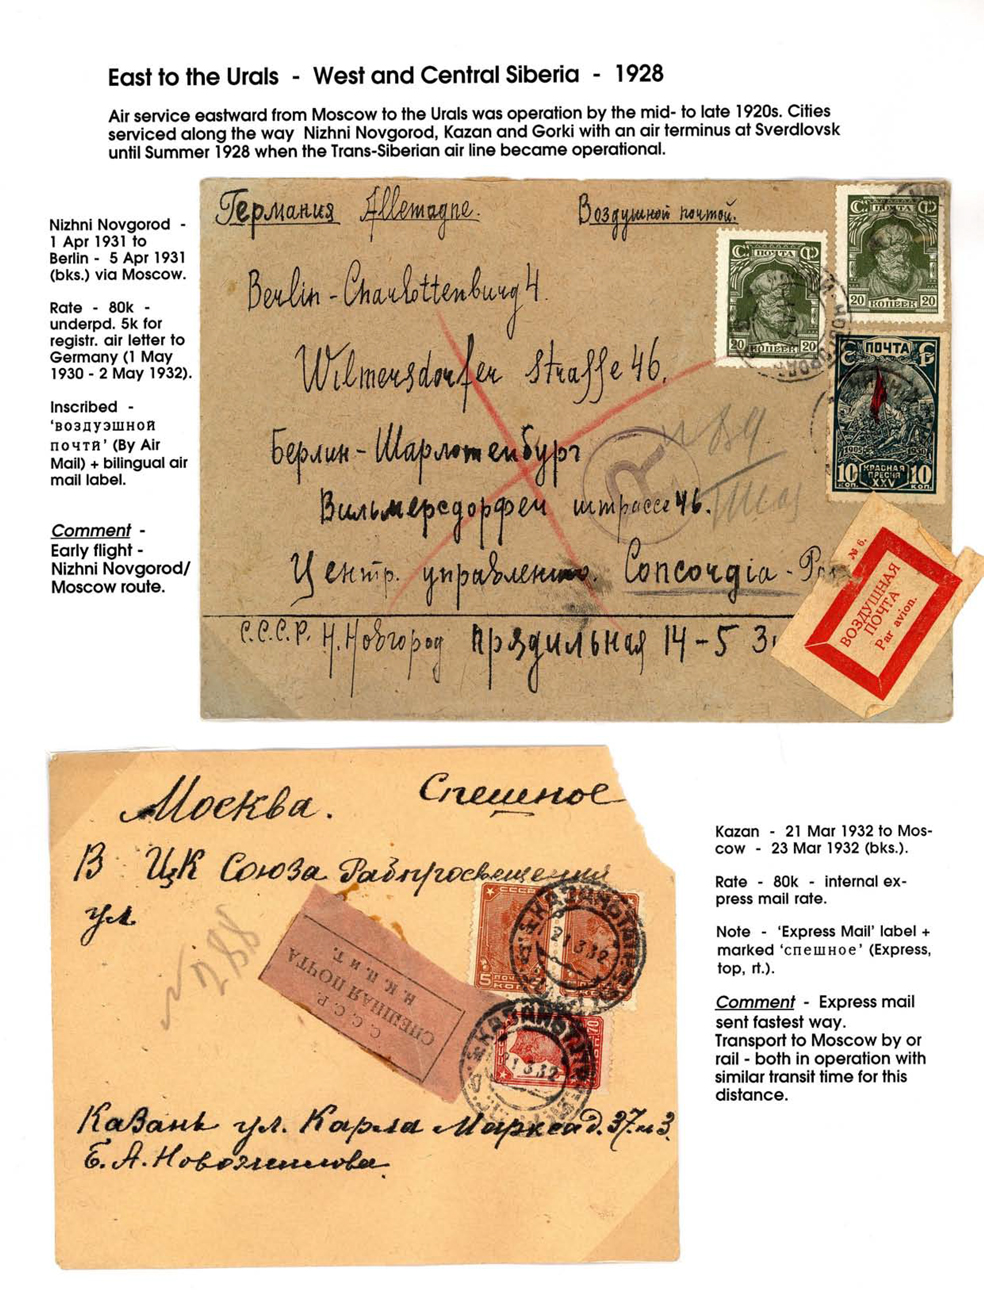 East to the Urals - West and Central Siberia - 1928
Air service eastward from Moscow to the Urals was operation by the mid- to late 1920s. Cities
serviced along the way Nizhni Novgorod, Kazan and Gorki with an air terminus at Sverdlovsk
until Summer 1928 when the Trans-Siberian air line became operational.
Nizhni Novgorod -
1 Apr 1931 to
Berlin - 5 Apr 1931
(bks.) via Moscow.
Rate - 80k -
underpd. 5k for
registr. air letter to
Germany (1 May
1930 - 2 May 1932).
Inscribed -
‘воздуэшной
почти’ (By Air
Mail) + bilingual air
mail label.
Comment -
Early flight -
Nizhni Novgorod/
Moscow route.
Германия Allemagne.
Воздушной почтой.
Berlin-Charlottenburg 4.
Wilmersdorfer Strasse 46.
Берлин-Шарлотенбург
Вильмерсдорфен штрассе 46.
Центр. управление. Concordia -
С.С.С.Р. Н.Новгород Прядильная 14-5
R
ПОЧТА
20 КОПЕЕК 20
ПОЧТА
20 КОПЕЕК 20
ПОЧТА
1905 1930
10 КОП. КРАСНАЯ ПРЕСНЯ XXV 10 КОП.
№ 6.
ВОЗДУШНАЯ
ПОЧТА
Par avion.
Москва. Спешное
В ЦК Союза Рабпросвещения
ул
№ 288
С. С. С. Р.
СПЕШНАЯ ПОЧТА
Н. К. П. и Т.
СССР
5 КОП
КАЗАНЬ
21 3 32
КАЗАНЬ
21 3 32
Казань ул. Карла Маркса д. 37. к 3.
Е. А. Новожилова
Kazan - 21 Mar 1932 to Mos-
cow - 23 Mar 1932 (bks.).
Rate - 80k - internal ex-
press mail rate.
Note - ‘Express Mail’ label +
marked ‘спешное’ (Express,
top, rt.).
Comment - Express mail
sent fastest way.
Transport to Moscow by or
rail - both in operation with
similar transit time for this
distance.